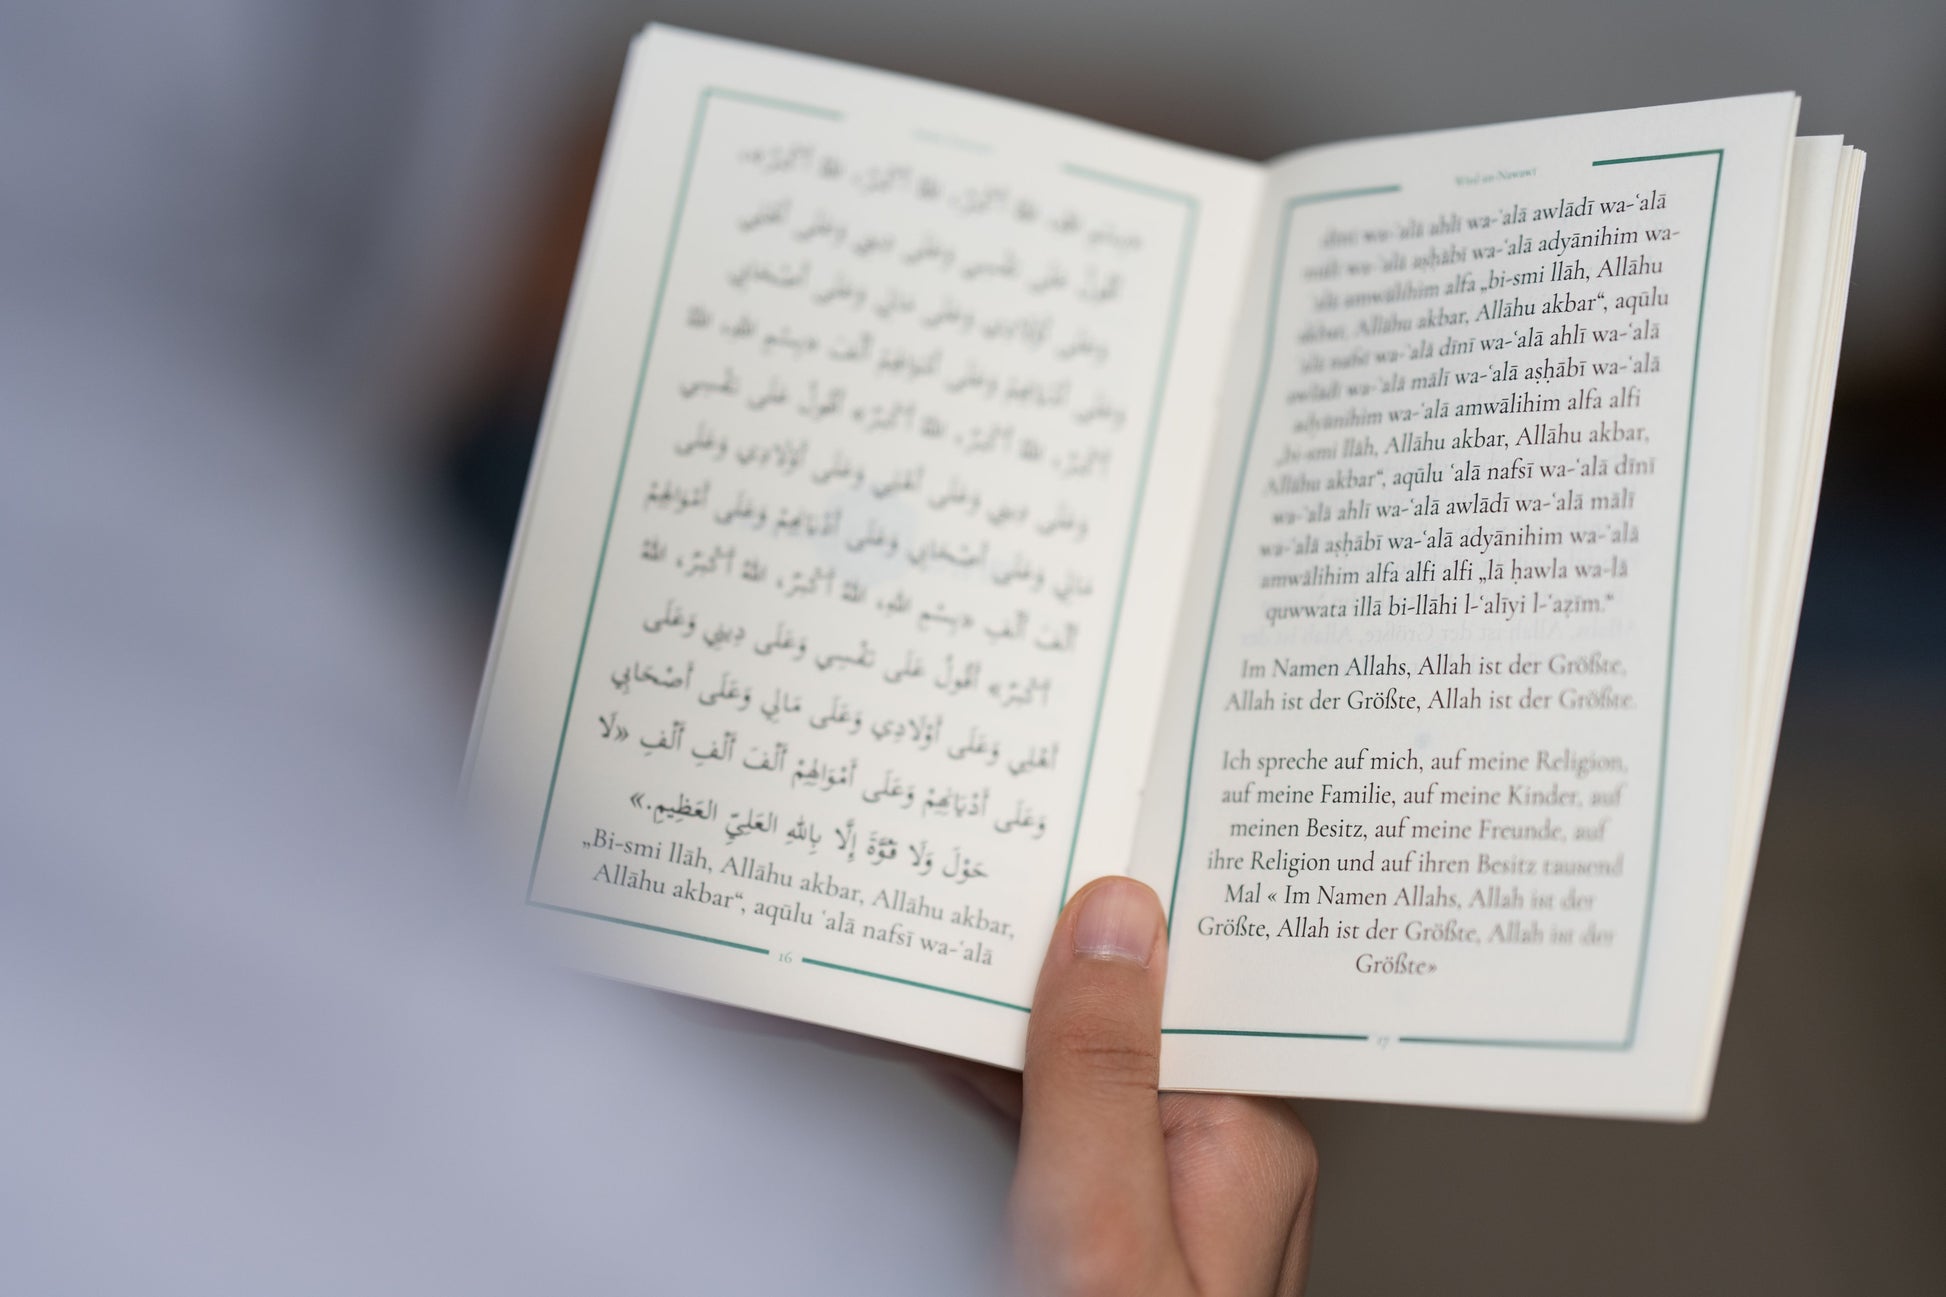 «بِسْمِ اللهِ، اللهُ أَكْبَرُ، اللهُ أَكْبَرُ، اللهُ أَكْبَرُ»،
أَقُولُ عَلَى نَفْسِي وَعَلَى دِينِي وَعَلَى أَهْلِي
وَعَلَى أَوْلَادِي وَعَلَى مَالِي وَعَلَى أَصْحَابِي
وَعَلَى أَدْيَانِهِمْ وَعَلَى أَمْوَالِهِمْ أَلْفَ «بِسْمِ اللهِ، اللهُ
أَكْبَرُ، اللهُ أَكْبَرُ، اللهُ أَكْبَرُ» أَقُولُ عَلَى نَفْسِي
وَعَلَى دِينِي وَعَلَى أَهْلِي وَعَلَى أَوْلَادِي وَعَلَى
مَالِي وَعَلَى أَصْحَابِي وَعَلَى أَدْيَانِهِمْ وَعَلَى أَمْوَالِهِمْ
أَلْفَ أَلْفِ «بِسْمِ اللهِ، اللهُ أَكْبَرُ، اللهُ أَكْبَرُ، اللهُ
أَكْبَرُ» أَقُولُ عَلَى نَفْسِي وَعَلَى دِينِي وَعَلَى
أَهْلِي وَعَلَى أَوْلَادِي وَعَلَى مَالِي وَعَلَى أَصْحَابِي
وَعَلَى أَدْيَانِهِمْ وَعَلَى أَمْوَالِهِمْ أَلْفَ أَلْفِ أَلْفِ «لَا
حَوْلَ وَلَا قُوَّةَ إِلَّا بِاللهِ العَلِيِّ العَظِيمِ.»
„Bi-smi llāh, Allāhu akbar, Allāhu akbar,
Allāhu akbar“, aqūlu ʿalā nafsī wa-ʿalā
16
Wird an-Nawawī
dīnī wa-ʿalā ahlī wa-ʿalā awlādī wa-ʿalā
mālī wa-ʿalā aṣḥābī wa-ʿalā adyānihim wa-
ʿalā amwālihim alfa „bi-smi llāh, Allāhu
akbar, Allāhu akbar, Allāhu akbar“, aqūlu
ʿalā nafsī wa-ʿalā dīnī wa-ʿalā ahlī wa-ʿalā
awlādī wa-ʿalā mālī wa-ʿalā aṣḥābī wa-ʿalā
adyānihim wa-ʿalā amwālihim alfa alfi
„bi-smi llāh, Allāhu akbar, Allāhu akbar,
Allāhu akbar“, aqūlu ʿalā nafsī wa-ʿalā dīnī
wa-ʿalā ahlī wa-ʿalā awlādī wa-ʿalā mālī
wa-ʿalā aṣḥābī wa-ʿalā adyānihim wa-ʿalā
amwālihim alfa alfi alfi „lā ḥawla wa-lā
quwwata illā bi-llāhi l-ʿalīyi l-ʿaẓīm.“
Im Namen Allahs, Allah ist der Größte,
Allah ist der Größte, Allah ist der Größte.
Ich spreche auf mich, auf meine Religion,
auf meine Familie, auf meine Kinder, auf
meinen Besitz, auf meine Freunde, auf
ihre Religion und auf ihren Besitz tausend
Mal « Im Namen Allahs, Allah ist der
Größte, Allah ist der Größte, Allah ist der
Größte»
17